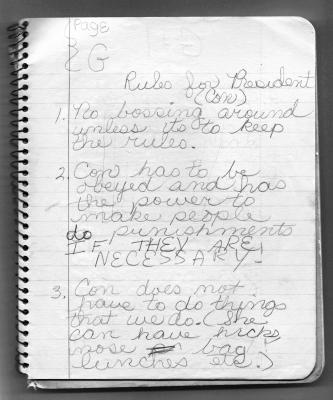 Page
G
Rules for President
(Con)
1. No bossing around
unless its to keep
the rules.
2. Con has to be
obeyed and has
the power to
make people
do punishments
IF THEY ARE
NECESSARY!
3. Con does not
have to do things
that we do. (She
can have hicks,
nose bag
lunches etc.)